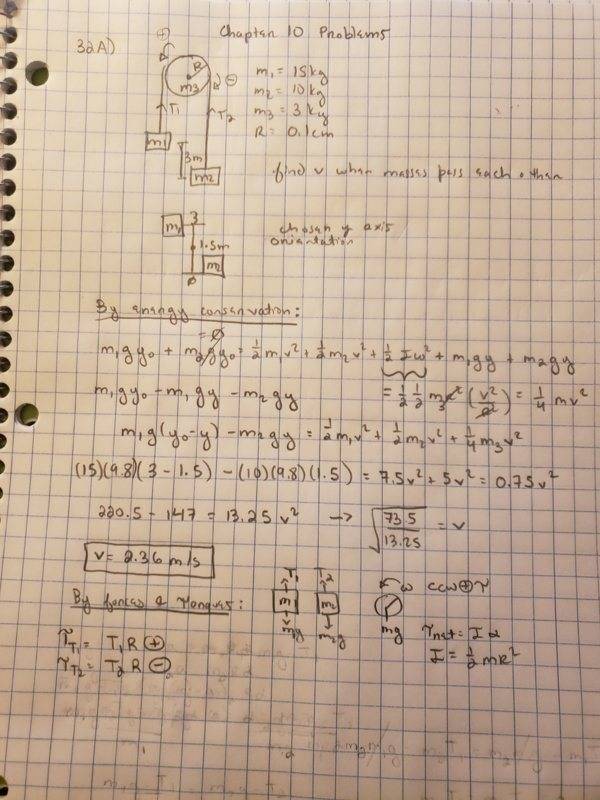 Chapter 10 Problems
32A)
⊕
R
m3
⊖
T1
T2
m1
3m
m2
m1 = 15kg
m2 = 10kg
m3 = 3kg
R = 0.1cm
find v when masses pass each other
m1
3
1.5m
m2
0
chosen y axis
orientation
By energy conservation:
= 0
m1gy0 + m2gy0 = 1/2 m1v² + 1/2 m2v² + 1/2 Iω² + m1gy + m2gy
m1gy0 - m1gy - m2gy
= 1/2 1/2 m3R² (v²/R²) = 1/4 mv²
m1g(y0-y) - m2gy = 1/2 m1v² + 1/2 m2v² + 1/4 m3v²
(15)(9.8)(3 - 1.5) - (10)(9.8)(1.5) = 7.5v² + 5v² = 0.75v²
220.5 - 147 = 13.25 v² → √(73.5/13.25) = v
v = 2.36 m/s
By forces & Torques:
T1
m1
m1g
T2
m2
m2g
ω
mg
ccw ⊕ τ
τnet = Iα
I = 1/2 mR²
τT1 = T1R ⊕
τT2 = T2R ⊖